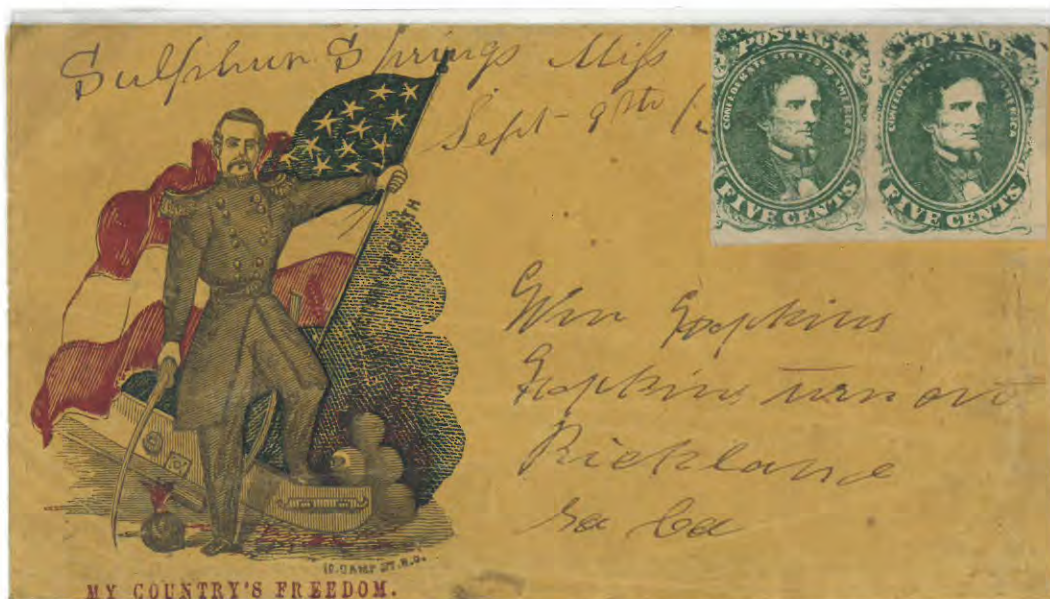 Sulphur Springs Miss
Sept- 9th
POSTAGE
CONFEDERATE STATES OF AMERICA
FIVE CENTS
POSTAGE
CONFEDERATE STATES OF AMERICA
FIVE CENTS
OR DEATH
Wm Hopkins
Hopkins turn out
Richland
So Ca
10. CAMP ST. N.O.
MY COUNTRY'S FREEDOM.